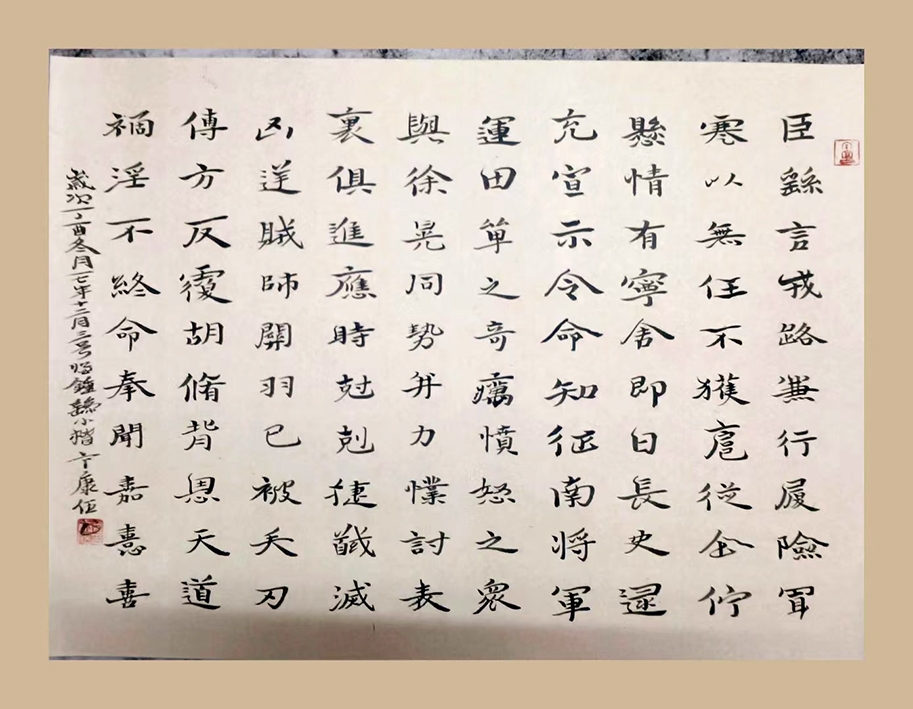 臣繇言戎路兼行履險冒
寒以無任不獲扈從企佇
懸情有寧舍即日長史逯
充宣示令命知征南將軍
運田單之奇癘憤怒之眾
與徐晃同勢并力撲討表
裏俱進應時尅剋捷馘滅
凶逆賊帥關羽已被矢刃
傅方反覆胡脩背恩天道
禍淫不終命奉聞嘉憙喜
歲次丁酉冬月一七年十二月三号临鍾繇小楷卞康任